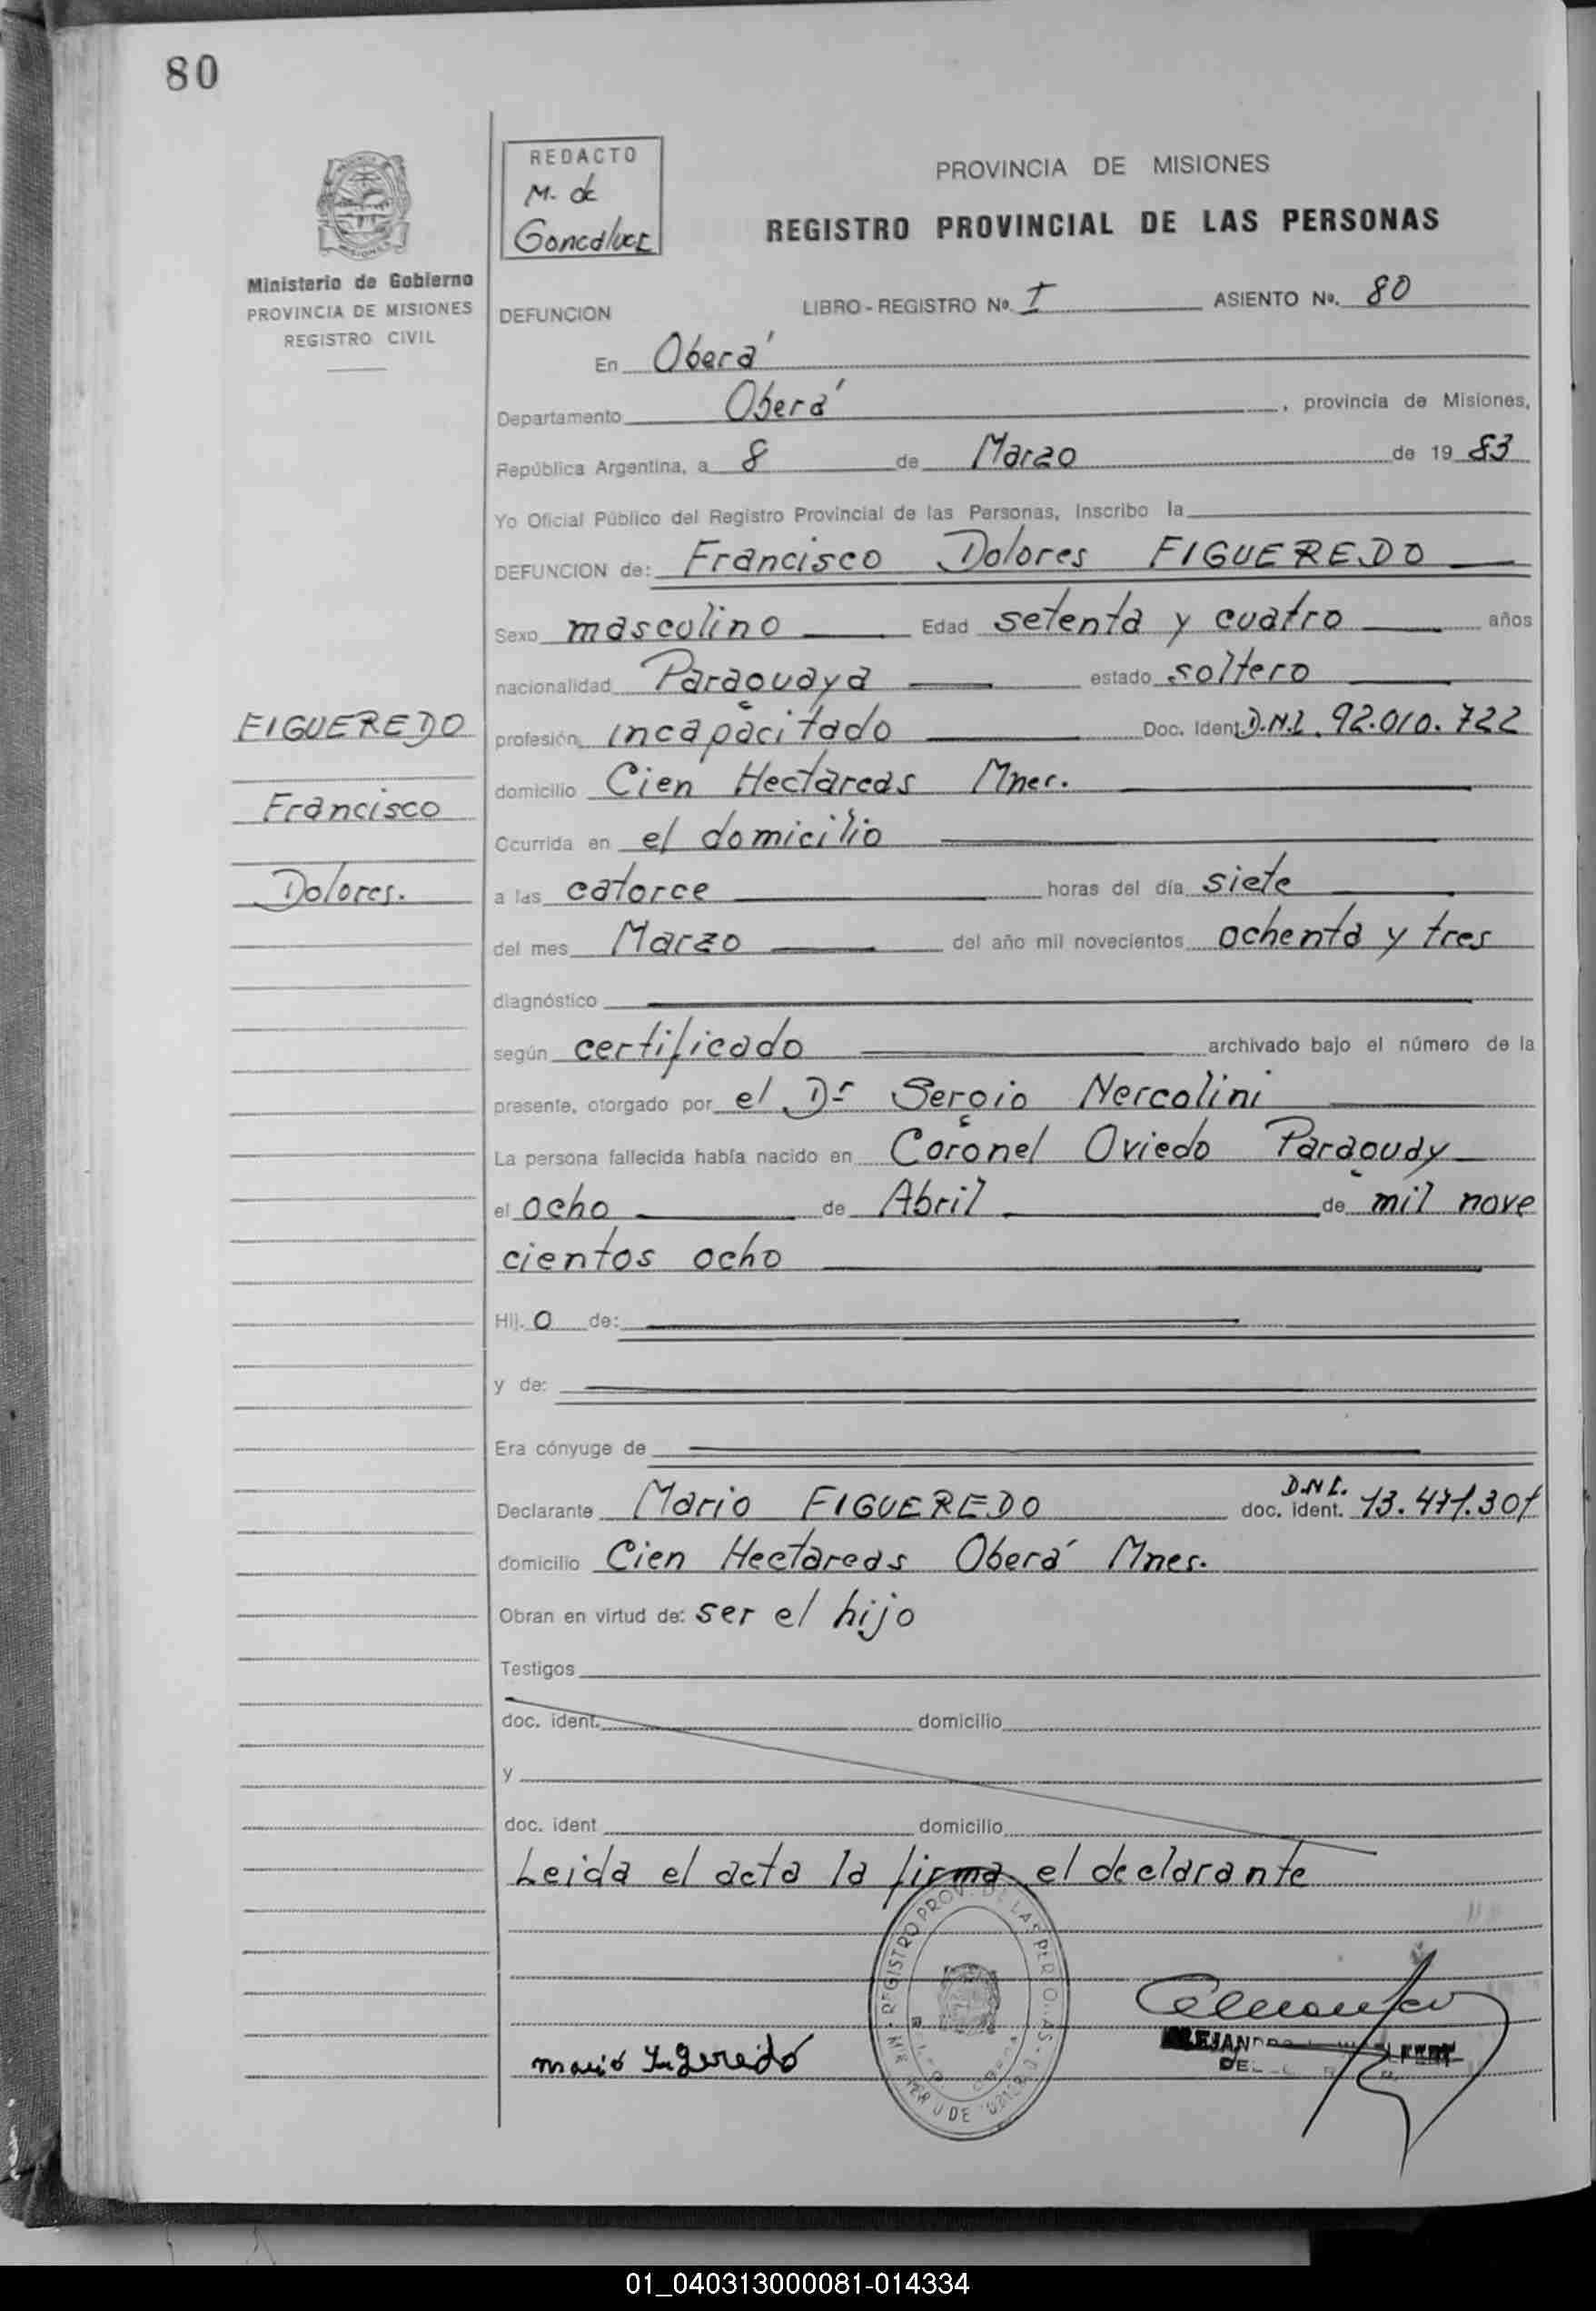 80
REDACTO
M. de
Goncalvez
PROVINCIA DE MISIONES
REGISTRO PROVINCIAL DE LAS PERSONAS
Ministerio de Gobierno
PROVINCIA DE MISIONES
REGISTRO CIVIL
DEFUNCION LIBRO - REGISTRO Nº. I ASIENTO Nº. 80
En Oberá
Departamento Oberá , provincia de Misiones,
República Argentina, a 8 de Marzo de 19 83
Yo Oficial Público del Registro Provincial de las Personas, Inscribo la
DEFUNCION de: Francisco Dolores FIGUEREDO
Sexo masculino Edad setenta y cuatro años
nacionalidad Paraguaya estado soltero
FIGUEREDO
Francisco
Dolores.
profesión incapacitado Doc. Ident. D.N.I. 92.010.722
domicilio Cien Hectareas Mnes.
Ocurrida en el domicilio
a las catorce horas del día siete
del mes Marzo del año mil novecientos ochenta y tres
diagnóstico
según certificado archivado bajo el número de la
presente, otorgado por el Dr Sergio Nercolini
La persona fallecida había nacido en Coronel Oviedo Paraguay
el ocho de Abril de mil nove
cientos ocho
Hij. o de:
y de:
Era cónyuge de
Declarante Mario FIGUEREDO D.N.I. doc. ident. 13.471.301
domicilio Cien Hectareas Oberá Mnes.
Obran en virtud de: ser el hijo
Testigos
doc. ident. domicilio
y
doc. ident domicilio
Leida el acta la firma el declarante
REGISTRO PROV. DE LAS
Mario Figueredo
01_040313000081-014334